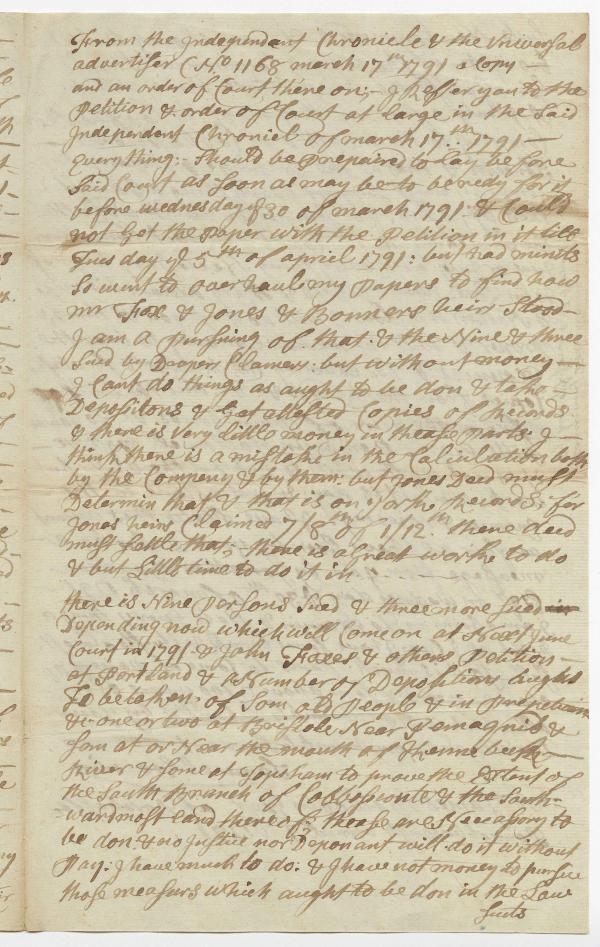 From the Independant Chronicle & the Universal
advertiser (No 1168 march 17th 1791 a Copy —
and an order of Court there on;- I Reffer you to the
Petition & order of Court at large in the Said
Independent Chronicl of march 17th 1791 —
every thing:- Should be prepaired to lay before
Said Court as Soon as may be to be redy for it
before wednesday ye 30 of march 1791 & Could
not Get the paper with the Petition in it till
Tues day ye 5th of april 1791: but had minits
So went to over haul my papers to find how
mr Fox & Jones & Bonners heir Stood —
I am a pursuing of that & the Nine & three
Sued by Clamers: but without money —
I Cant do things as aught to be don & take —
Depositons & Get attested Copies of Records
& there is very little money in thease parts: I —
think there is a mistake in the Calculation both
by the Company & by them: but Jones Deed must
Determin that & that is on york Records; for
Jones heirs Claimed 7/8th of 1/12th there deed
must Satle that, there is a Great worke to do
& but Little time to do it in
there is Nine persons Sued & three more Sued
Depending now which will Come on at Next June
Court in 1791 & John Foxes & others Petition —
at Portland & a Number of Depositions aught
To be taken of Som old People & in
& one or two at Bristole Near Pemaquid &
Som at or Near the mouth of Kennebeck —
River & Some at Topsham to prove the Extent of
the South Branch of Cobbeseconte & the South-
wardmost land there of: thease are Necessary to
be don & no Justice nor Deponant will do it without
Pay: I have much to do: & I have not money to pursue
those measurs which aught to be don in the Law
Suits